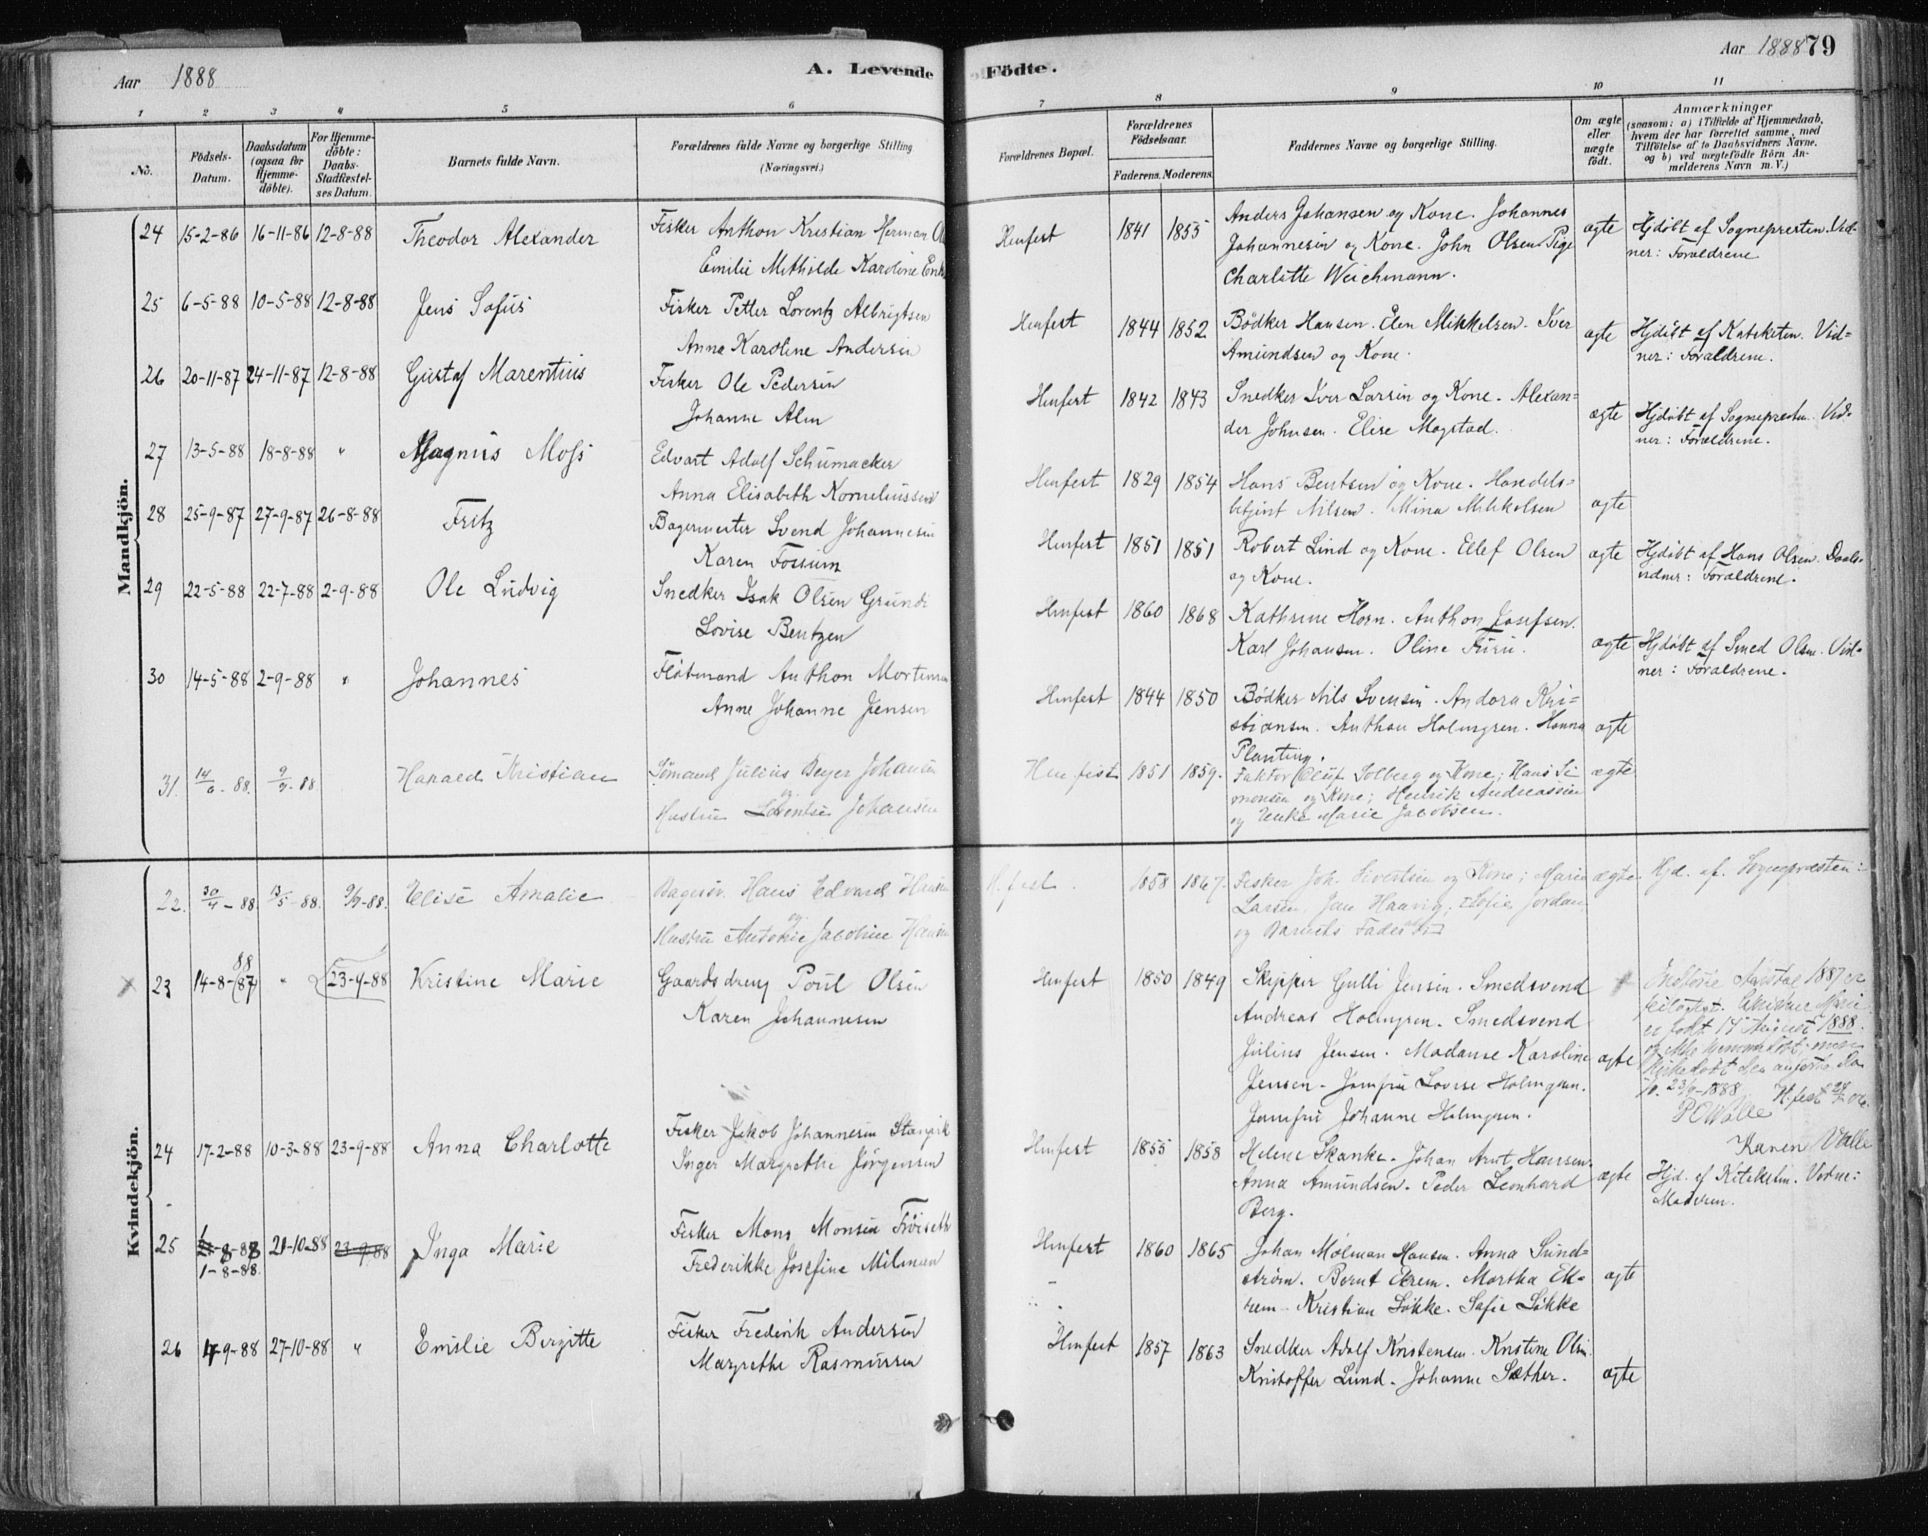 Aar 1888
A. Levende Födte.
Aar 1888 79
1 2 3 4 5 6 7 8 9 10 11
No.
Födsels-Datum.
Daabsdatum (ogsaa for Hjemmedöbte).
For Hjemmedöbte: Daabs-Stadfæstelses Datum.
Barnets fulde Navn.
Forældrenes fulde Navne og borgerlige Stilling (Næringsvei.)
Forældrenes Bopæl.
Forældrenes Födselsaar.
Faderens. Moderens.
Faddernes Navne og borgerlige Stilling.
Om ægte eller uægte födt.
Anmærkninger
(saasom: a) i Tilfælde af Hjemmedaab, hvem der har forrettet samme, med Tilföielse af to Daabsvidners Navne, og b) ved uægtefödte Börn Anmelderens Navn m. V.)
Mandkjön.
24 15-2-86 16-11-86 12-8-88 Theodor Alexander
Fisker Anthon Kristian Herman
Emilie Mathilde Karoline
Hmfest 1841 1855
Anders Johansen og Kone. Johannes
Johannesen og Kone. John Olsen. Pige
Charlotte Weichmann.
ægte
Hjdöbt af Sognepresten. Vid-
ner: Forældrene
25 6-5-88 10-5-88 12-8-88 Jens Sofus
Fisker Petter Lorentz Albrigtsen
Anna Karoline Andersen
Hmfest 1844 1852
Bödker Hansen. Elen Mikkelsen. Iver
Amundsen og Kone.
ægte
Hjdöbt af Kateketen. Vid-
ner: Forældrene.
26 20-11-87 24-11-87 12-8-88 Gustaf Marentius
Fisker Ole Pedersen
Johanne Alm
Hmfest 1842 1843
Snedker Iver Larsen og Kone. Alexan-
der Johnsen. Elise Mogstad.
ægte
Hjdöbt af Sognepresten. Vid-
ner: Forældrene.
27 13-5-88 18-8-88 " Magnus Moss
Edvart Adolf Schumacker
Anna Elisabeth Korneliussen
Hmfest 1829 1854
Hans Bentsen og Kone. Handels-
betjent Nilsen. Mina Mikkelsen
ægte
28 25-9-87 27-9-87 26-8-88 Fritz
Bagermester Svend Johannesen
Karen Fossum
Hmfest 1851 1851
Robert Lind og Kone. Ellef Olsen
og Kone.
ægte
Hjdöbt af Hans Olsen. Daabs-
vidner: Forældrene.
29 22-5-88 22-7-88 2-9-88 Ole Ludvig
Snedker Isak Olsen Grundi
Lovise Bentzen
Hmfest 1860 1868
Kathrine Horn. Anthon Josefsen.
Karl Johansen. Oline Furu.
ægte
Hjdöbt af Smed Olsen. Vid-
ner: Forældrene.
30 14-5-88 2-9-88 " Johannes
Flötmand Anthon Mortensen
Anne Johanne Jensen
Hmfest 1844 1850
Bödker Nils Svensen. Andora Kri-
stiansen. Anthon Holmgren. Hanna
Planting.
ægte
31. 88. 9/9 88 Harald Kristian
Sömand Julius Beyer Johansen
og
Hustru Lorentse Johansen
Hmfest 1851 1859.
Faktor Oluf Solberg og Kone; Hans Si
monsen og Kone; Henrik Andreassen
og Enke Marie Jacobsen.
ægte
Kvindekjön.
22. 30/4-88 13/5-88. 9/9-88. Elise Amalie
Hans Edvard Hansen
og
Hustru Antonie Jacobine Hansen
H.fest. 1858 1867.
Fisker Joh. Sivertsen og Kone; Marie
Larsen, Jan Haavig; Sofie Jordan
og Barnets Fader
ægte
Hjd. af. Sognepræsten:
23 14-8-(87) 88 " 23-9-88 Kristine Marie
Gaardsdreng Poul Olsen
Karen Johannesen
Hmfest 1850 1849
Skipper Gulli Jensen. Smedsvend
Andreas Holmgren. Smedsvend
Julius Jensen. Madame Karoline
Jensen. Jomfru Lovise Holmgren.
Jomfru Johanne Holmgren.
ægte
1887 er
feilagtigt. Kristine Marie
er födt 14 August 1888.
og ikke hjemmedöbt, men
kirkedöbt den anförte Da
to. 23/9-1888 H.fest
P C Valle
Karen Valle
24 17-2-88 10-3-88 23-9-88 Anna Charlotte
Fisker Jakob Johannesen
Inger Margrethe Jörgensen
Hmfest 1855 1858
Helene Skanke. Johan Arnt Hansen.
Anna Amundsen. Peder Leonhard
Berg.
ægte
Hjd. af Kateketen. Vidne:
Moderen.
25 1-8-88. 21-10-88 23-9-88 Inga Marie
Fisker Mons Monsen Fröiseth
Frederikke Josefine Milman
Hmfest 1860 1865
Johan Mølman Hansen. Anna Sund-
ström. Bernt Ekrem. Martha Ek-
rem. Kristian Lökke. Sofie Lökke
ægte
26 4-9-88 27-10-88 " Emilie Birgitte
Fisker Fredrik Andersen
Margrethe Rasmussen
Hmfest 1857 1863
Snedker Adolf Kristensen. Kristine Olsen.
Kristoffer Lund. Johanne Sæther.
ægte